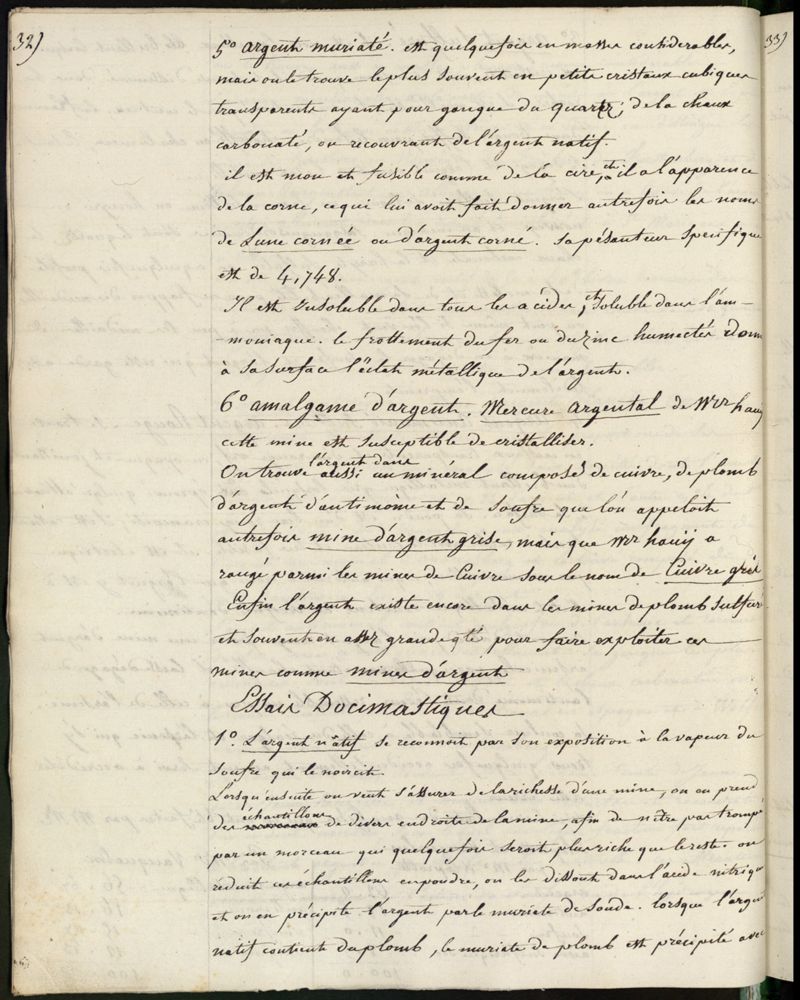 32)
33)
5° argent muriaté. est quelquefois en masses considerables,
mais on le trouve le plus souvent en petits cristaux cubiques
transparents ayant pour gangue du quartz, de la chaux
carbonaté, ou recouvrant de l'argent natif.
il est mou et fusible comme de la cire, et il a l'apparence
de la corne, ce qui lui avoit fait donner autrefois les noms
de Lune cornée ou d'argent corné. sa pésanteur specifique
est de 4,748.
Il est insoluble dans tous les acides, et soluble dans l'am-
-moniaque. le frottement du fer ou du zinc humectés donne
à sa surface l'éclat métallique de l'argent.
6° amalgame d'argent. Mercure argental de Mrr hauy
cette mine est susceptible de cristalliser.
l'argent dans
On trouve aussi un minéral composé de cuivre, de plomb
d'argent d'antimoine et de soufre que l'on appeloit
autrefois mine d'argent grise, mais que Mrr hauij a
rangé parmi les mines de Cuivre sous le nom de Cuivre gris
Enfin l'argent existe encore dans les mines de plomb sulfuré
et souvent en assez grande qté pour faire exploiter ces
mines comme mines d'argent
Essais Docimastiques
1°. L'argent natif se reconnoit par son exposition à la vapeur du
soufre qui le noircit.
Lorsqu'ensuite on veut s'assurer de la richesse d'une mine, on en prend
échantillons
des de divers endroits de la mine, afin de n'être pas trompé
par un morceau qui quelquefois seroit plus riche que le reste. on
réduit ces échantillons en poudre, on les dissout dans l'acide nitrique
et on en précipite l'argent par le muriate de soude. lorsque l'argent
natif contient du plomb, le muriate de plomb est précipité avec